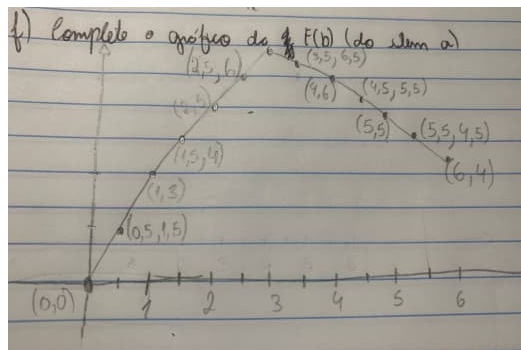 f) Complete o gráfico da F(b) (do item a)
(3,5, 6,5)
(2,5, 6)
(4,6)
(4,5, 5,5)
(2,5)
(5,5)
(5,5, 4,5)
(1,5, 4)
(6,4)
(1,3)
(0,5, 1,5)
(0,0) 1 2 3 4 5 6